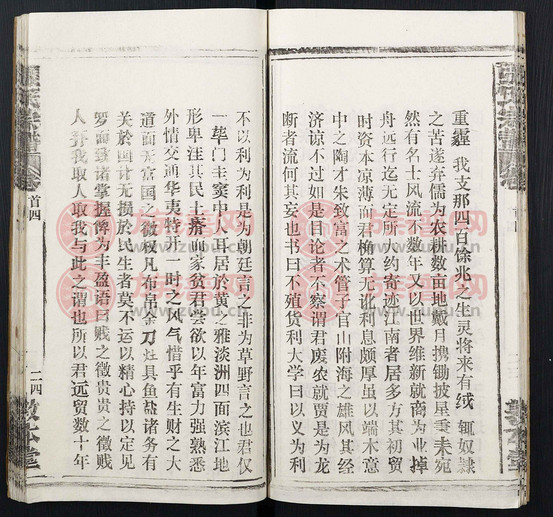 重霾我支那四百馀兆之生灵将来有绒辄奴隶
之苦遂弃儒为农耕数亩地戴月携锄披星秉耒宛
然有名士风流不数年又以世界维新就商为业掉
舟远行迄无定所约寄迹江南者居多方其初贸
时资本凉薄而君桷算无讹利息颇厚虽以端木意
中之陶才朱致富之术管子官山附海之雄风其经
济谅不过如是目论者不察谓君废农就贾是为龙
断者流何其妄也书曰不殖货利大学曰以义为利
不以利为利是为朝廷言之非为草野言之也君仅
一荜门圭窦中人耳居于黄之雅淡洲四面滨江地
形卑洼其民土瘠而家贫君尝欲以年富力强熟悉
外情交通华夷特开一时之风气惜乎有生财之大
道而无富国之微权凡布帛金刀灶具鱼盐诸务有
关于国计无损于民生者莫不运以精心持以定见
罗而致诸掌握俾为丰盈语曰贱之徵贵贵之徵贱
人弃我取人取我与此之谓也所以君远贸数十年
首四
二四
敦本堂